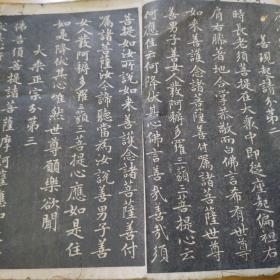 善現起請分第二
時長老須菩提在大衆中即從座起偏袒
右肩右膝著地合掌恭敬而白佛言希有世尊
如來善護念諸菩薩善付囑諸菩薩世尊
善男子善女人發阿耨多羅三藐三菩提心云
何應住云何降伏其心佛言善哉善哉須
菩提如女所說如來善護念諸菩薩善付
囑諸菩薩汝今諦聽當爲汝說善男子善
女人發阿耨多羅三藐三菩提心應如是住
如是降伏其心唯然世尊願樂欲聞
大乘正宗分第三
佛告須菩提諸菩薩摩訶薩應如